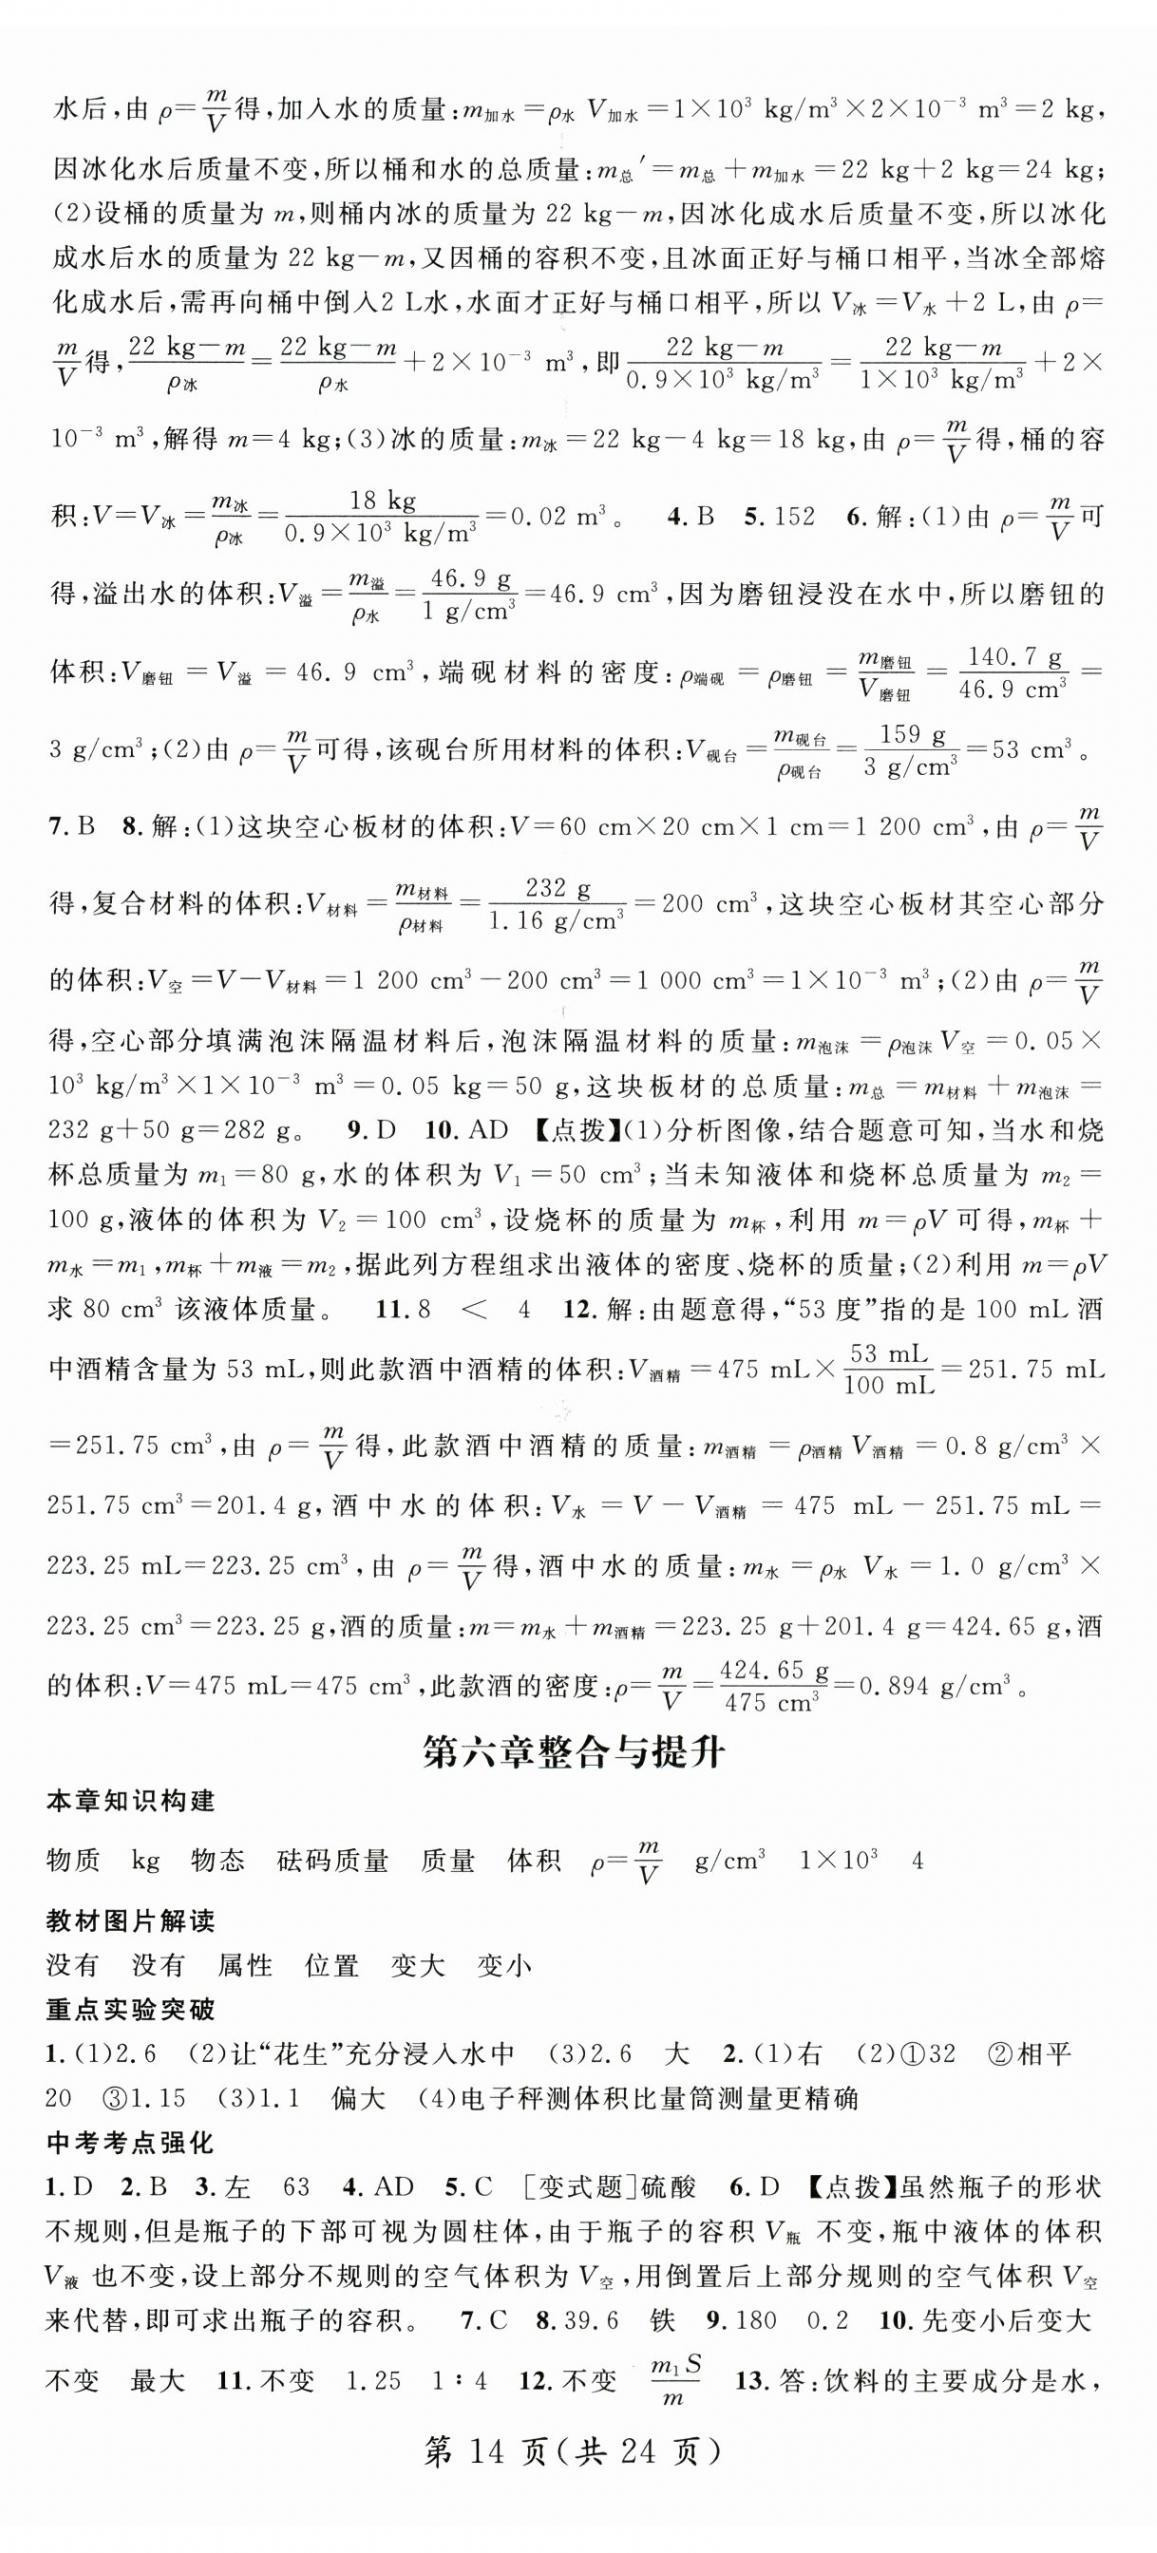 水后,由 ρ=m/V得,加入水的质量:m加水=ρ水 V加水=1×10³ kg/m³×2×10⁻³ m³=2 kg,
因冰化水后质量不变,所以桶和水的总质量:m总′=m总+m加水=22 kg+2 kg=24 kg;
(2)设桶的质量为 m,则桶内冰的质量为 22 kg-m,因冰化成水后质量不变,所以冰化
成水后水的质量为 22 kg-m,又因桶的容积不变,且冰面正好与桶口相平,当冰全部熔
化成水后,需再向桶中倒入2 L水,水面才正好与桶口相平,所以 V冰=V水+2 L,由 ρ=
m/V得,(22 kg-m)/ρ冰=(22 kg-m)/ρ水+2×10⁻³ m³,即(22 kg-m)/(0.9×10³ kg/m³)=(22 kg-m)/(1×10³ kg/m³)+2×
10⁻³ m³,解得 m=4 kg;(3)冰的质量:m冰=22 kg-4 kg=18 kg,由 ρ=m/V得,桶的容
积:V=V冰=m冰/ρ冰=18 kg/(0.9×10³ kg/m³)=0.02 m³。 4. B 5. 152 6. 解:(1)由 ρ=m/V可
得,溢出水的体积:V溢=m溢/ρ水=46.9 g/(1 g/cm³)=46.9 cm³,因为磨钮浸没在水中,所以磨钮的
体积:V磨钮=V溢=46.9 cm³,端砚材料的密度:ρ端砚=ρ磨钮=m磨钮/V磨钮=140.7 g/46.9 cm³=
3 g/cm³;(2)由 ρ=m/V可得,该砚台所用材料的体积:V砚台=m砚台/ρ砚台=159 g/(3 g/cm³)=53 cm³。
7. B 8. 解:(1)这块空心板材的体积:V=60 cm×20 cm×1 cm=1 200 cm³,由 ρ=m/V
得,复合材料的体积:V材料=m材料/ρ材料=232 g/(1.16 g/cm³)=200 cm³,这块空心板材其空心部分
的体积:V空=V-V材料=1 200 cm³-200 cm³=1 000 cm³=1×10⁻³ m³;(2)由 ρ=m/V
得,空心部分填满泡沫隔温材料后,泡沫隔温材料的质量:m泡沫=ρ泡沫 V空=0.05×
10³ kg/m³×1×10⁻³ m³=0.05 kg=50 g,这块板材的总质量:m总=m材料+m泡沫=
232 g+50 g=282 g。 9. D 10. AD 【点拨】(1)分析图像,结合题意可知,当水和烧
杯总质量为 m₁=80 g,水的体积为 V₁=50 cm³;当未知液体和烧杯总质量为 m₂=
100 g,液体的体积为 V₂=100 cm³,设烧杯的质量为 m杯,利用 m=ρV 可得,m杯+
m水=m₁,m杯+m液=m₂,据此列方程组求出液体的密度、烧杯的质量;(2)利用 m=ρV
求 80 cm³ 该液体质量。 11. 8 < 4 12. 解:由题意得,“53 度”指的是 100 mL 酒
中酒精含量为 53 mL,则此款酒中酒精的体积:V酒精=475 mL×53 mL/100 mL=251.75 mL
=251.75 cm³,由 ρ=m/V得,此款酒中酒精的质量:m酒精=ρ酒精 V酒精=0.8 g/cm³×
251.75 cm³=201.4 g,酒中水的体积:V水=V-V酒精=475 mL-251.75 mL=
223.25 mL=223.25 cm³,由 ρ=m/V得,酒中水的质量:m水=ρ水 V水=1.0 g/cm³×
223.25 cm³=223.25 g,酒的质量:m=m水+m酒精=223.25 g+201.4 g=424.65 g,酒
的体积:V=475 mL=475 cm³,此款酒的密度:ρ=m/V=424.65 g/475 cm³=0.894 g/cm³。
第六章整合与提升
本章知识构建
物质 kg 物态 砝码质量 质量 体积 ρ=m/V g/cm³ 1×10³ 4
教材图片解读
没有 没有 属性 位置 变大 变小
重点实验突破
1. (1)2.6 (2)让“花生”充分浸入水中 (3)2.6 大 2. (1)右 (2)①32 ②相平
20 ③1.15 (3)1.1 偏大 (4)电子秤测体积比量筒测量更精确
中考考点强化
1. D 2. B 3. 左 63 4. AD 5. C [变式题]硫酸 6. D 【点拨】虽然瓶子的形状
不规则,但是瓶子的下部可视为圆柱体,由于瓶子的容积 V瓶 不变,瓶中液体的体积
V液 也不变,设上部分不规则的空气体积为 V空,用倒置后上部分规则的空气体积 V空
来代替,即可求出瓶子的容积。 7. C 8. 39.6 铁 9. 180 0.2 10. 先变小后变大
不变 最大 11. 不变 1.25 1∶4 12. 不变 m₁S/m 13. 答:饮料的主要成分是水,
第 14 页(共 24 页)